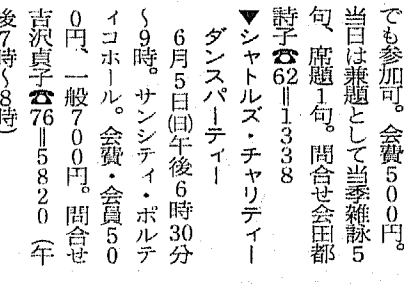 でも参加可。会費500円。
当日は兼題として当季雑詠5
句、席題1句。問合せ会田都
詩子☎62=1338
▼シャトルズ・チャリティー
ダンスパーティー
6月5日(日)午後6時30分
〜9時。サンシティ・ポルテ
ィコホール。会費・会員50
0円、一般700円。問合せ
吉沢貞子☎76=5820(午
後7時〜8時)